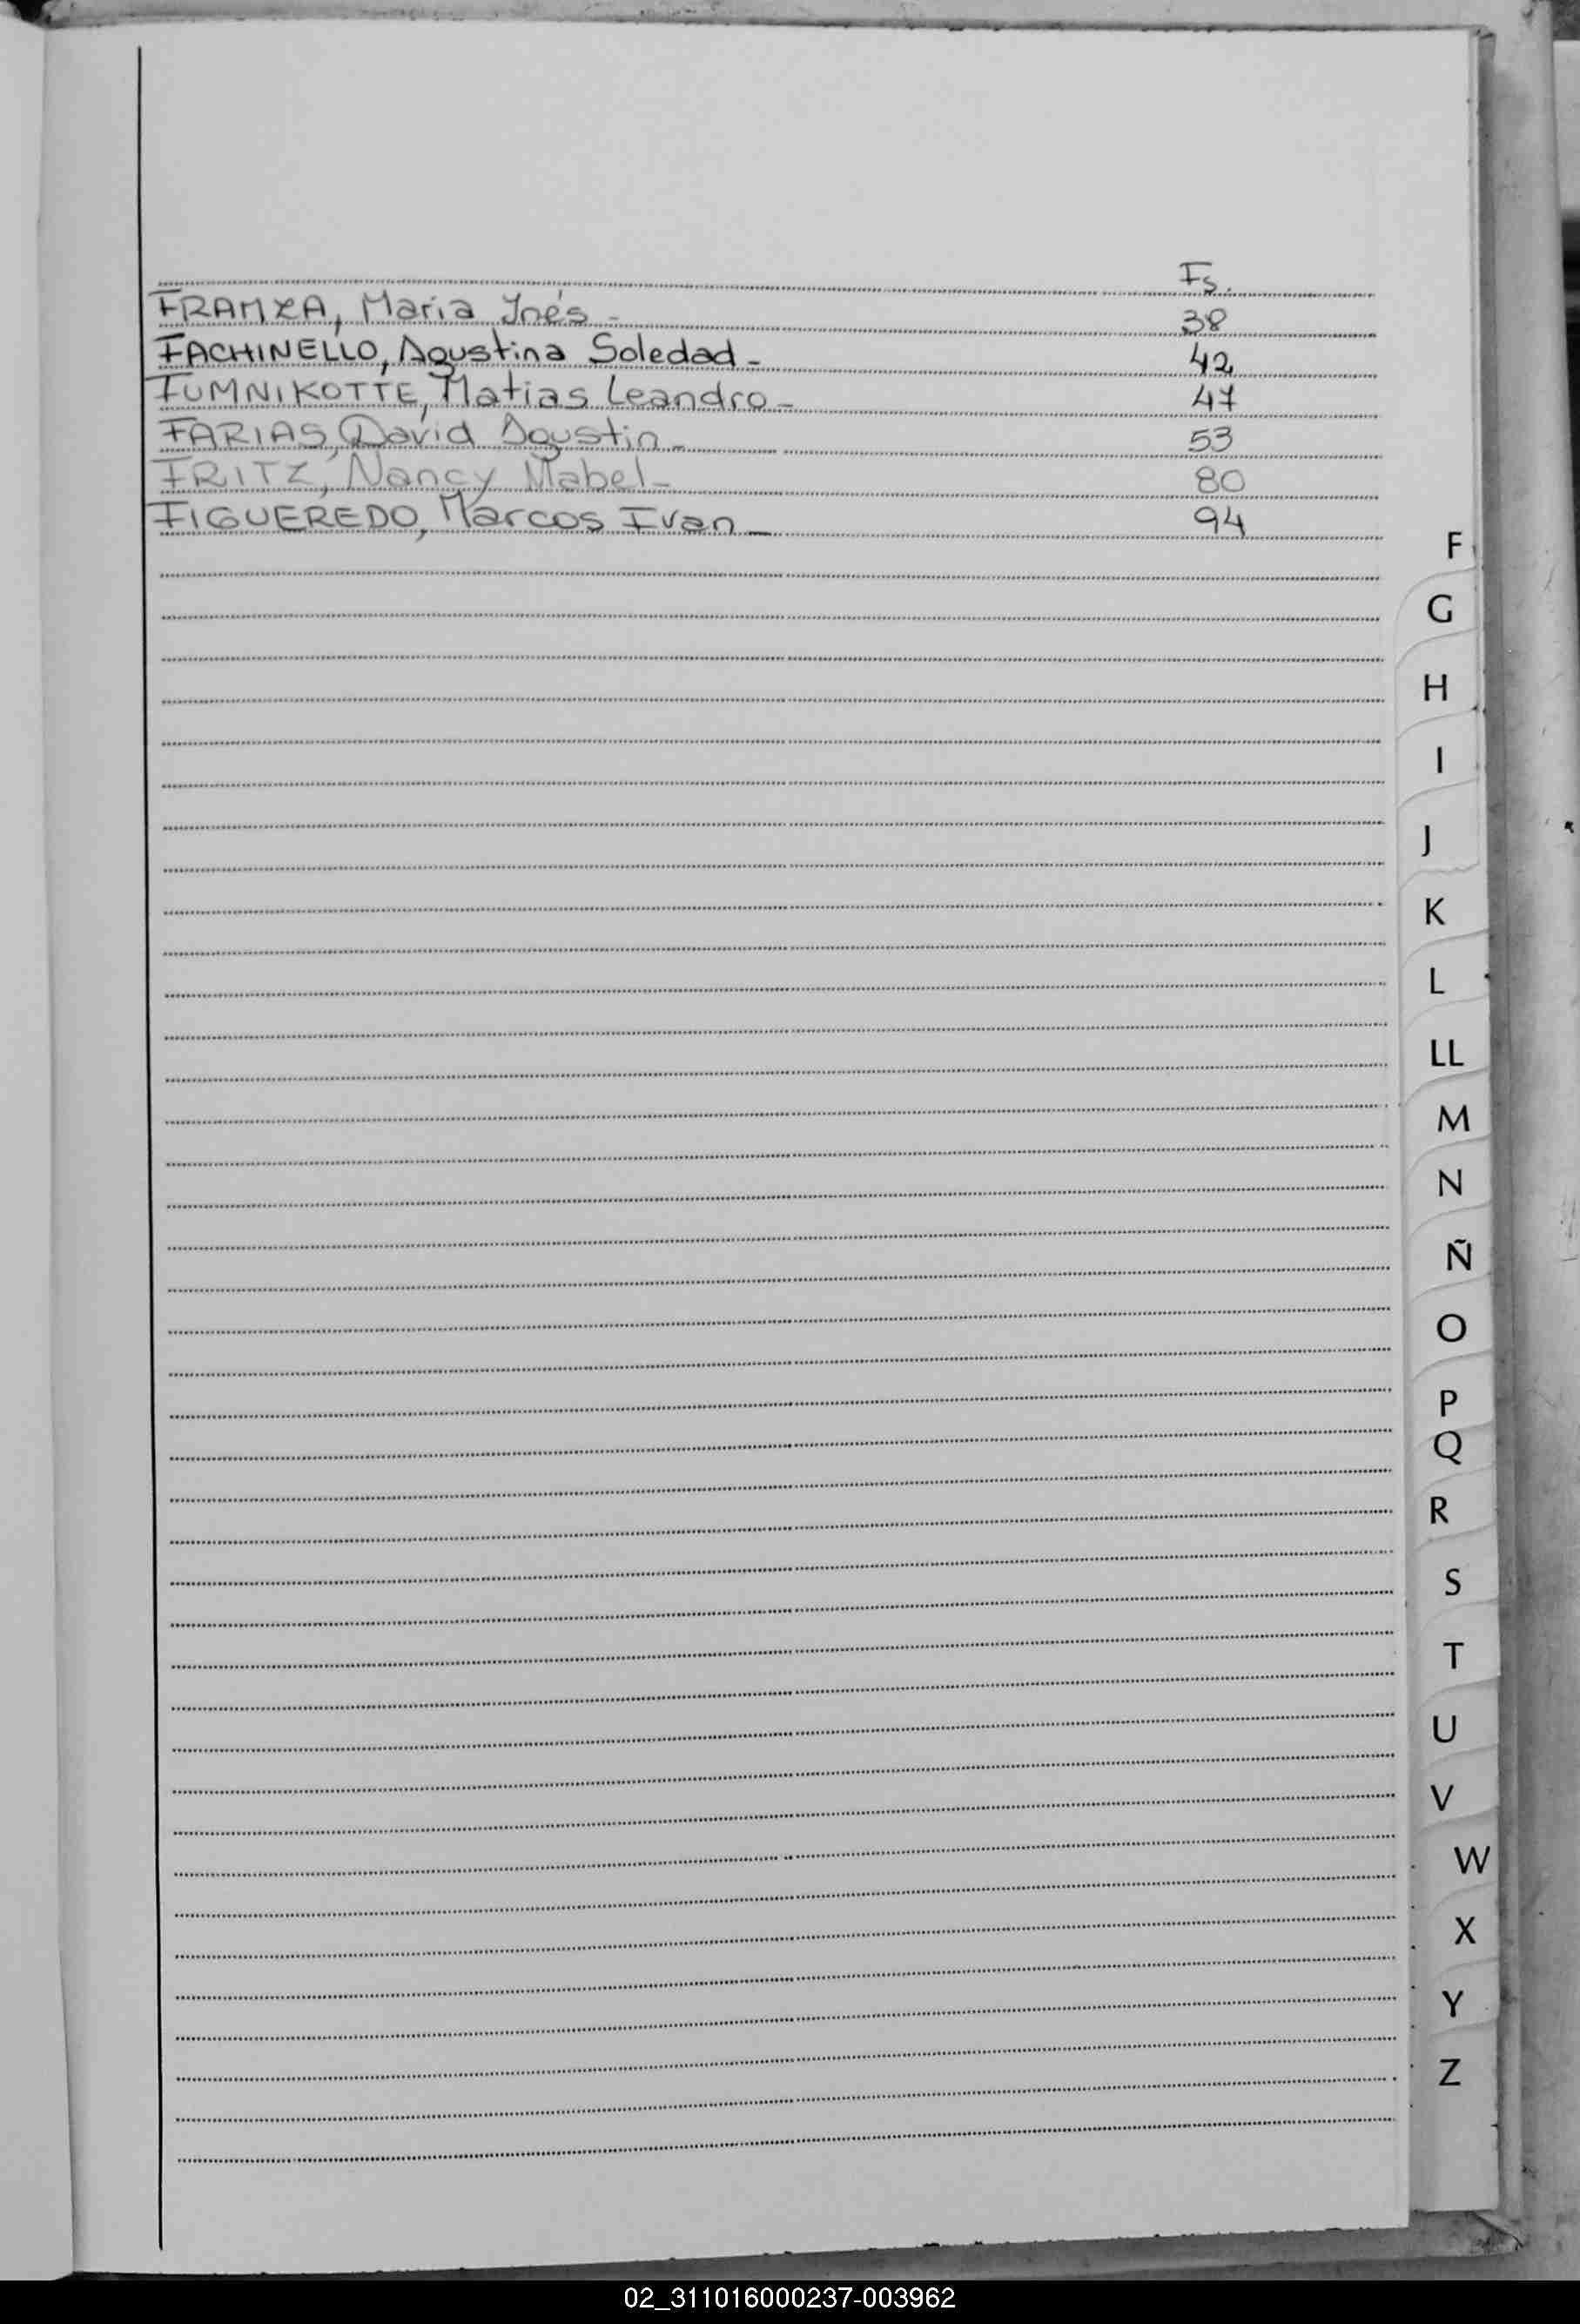 Fs.
FRANZA, Maria Inés - 38
FACHINELLO, Agustina Soledad - 42
FUMNIKOTTE, Matias Leandro - 47
FARIAS, David Agustin - 53
FRITZ, Nancy Mabel - 80
FIGUEREDO, Marcos Ivan - 94
F
G
H
I
J
K
L
LL
M
N
Ñ
O
P
Q
R
S
T
U
V
W
X
Y
Z
02_311016000237-003962